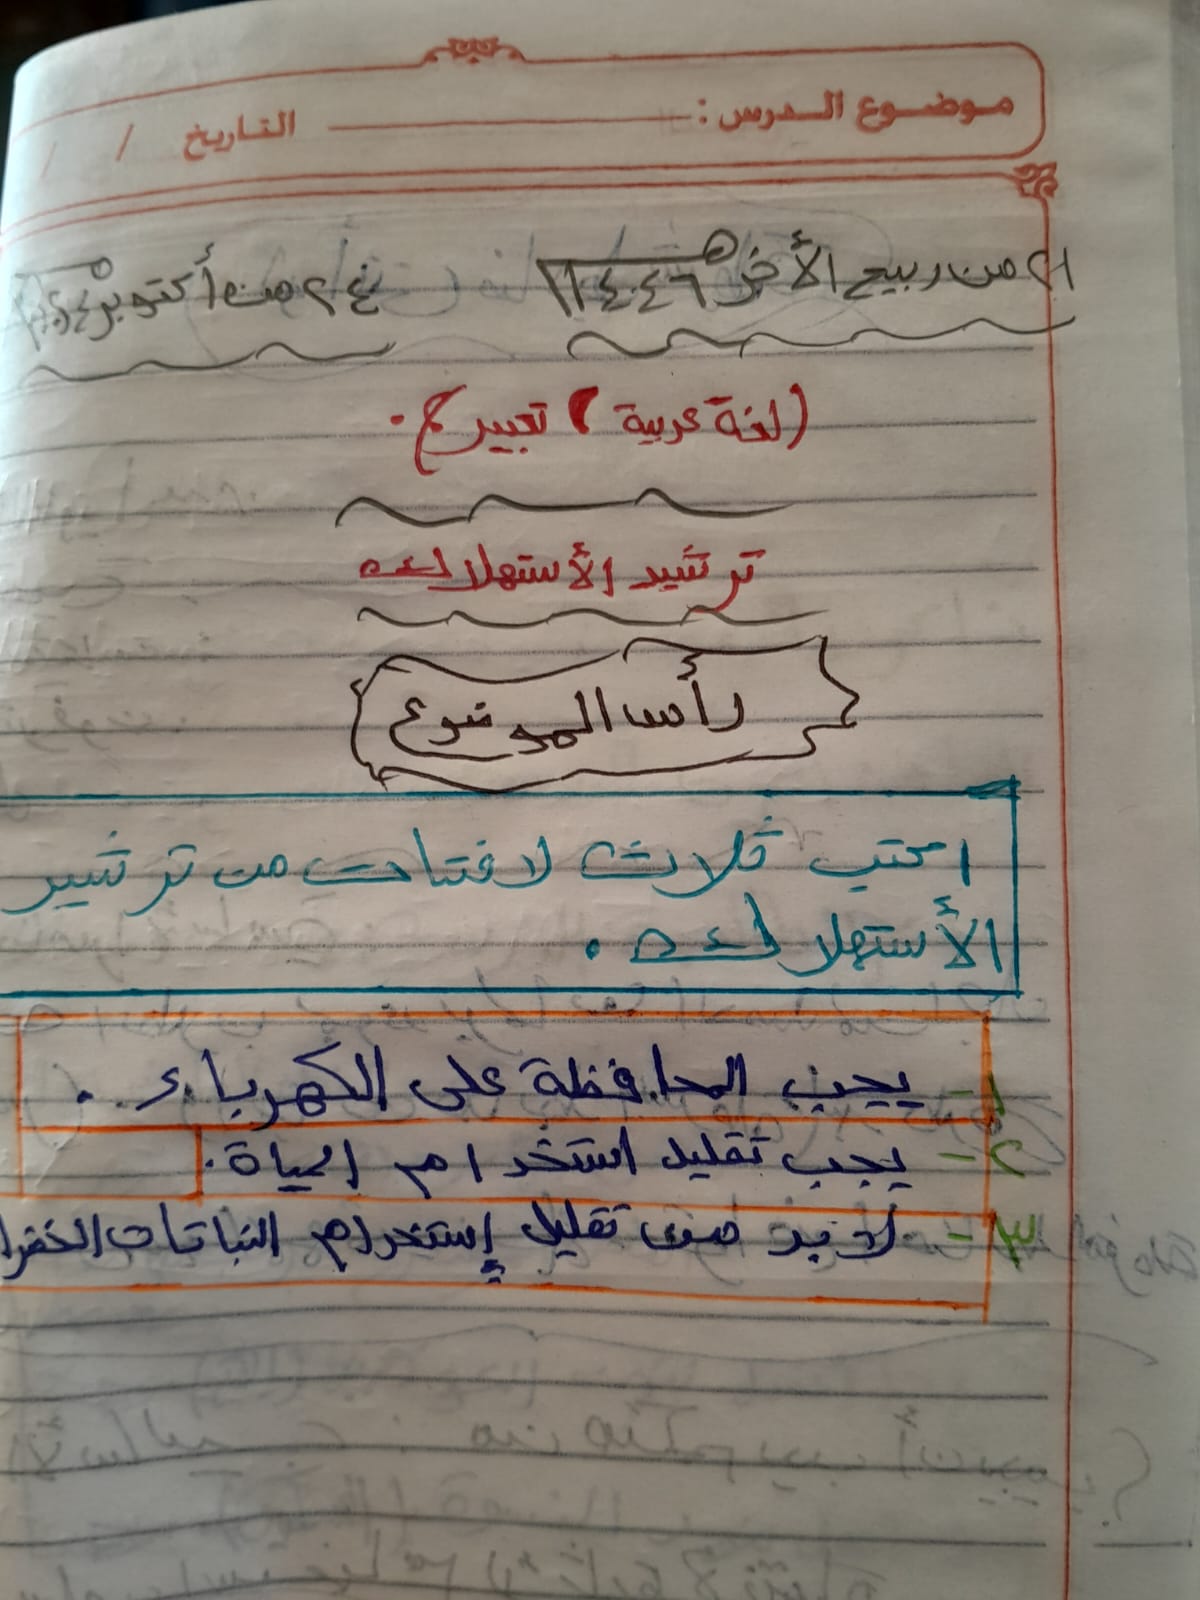 موضوع الدرس: التاريخ / /
٢١ من ربيع الأخر ١٤٤٦ه ٢٤ من أكتوبر
(لغة عربية) تعبير ج.
ترشيد الأستهلاك
رأس الموضوع
اكتب ثلاث لافتات من ترشيد
الأستهلاك.
١- يجب المحافظة على الكهرباء.
٢- يجب تقليل استخدام المياة.
٣- لا بد من تقليل إستخدام النباتات